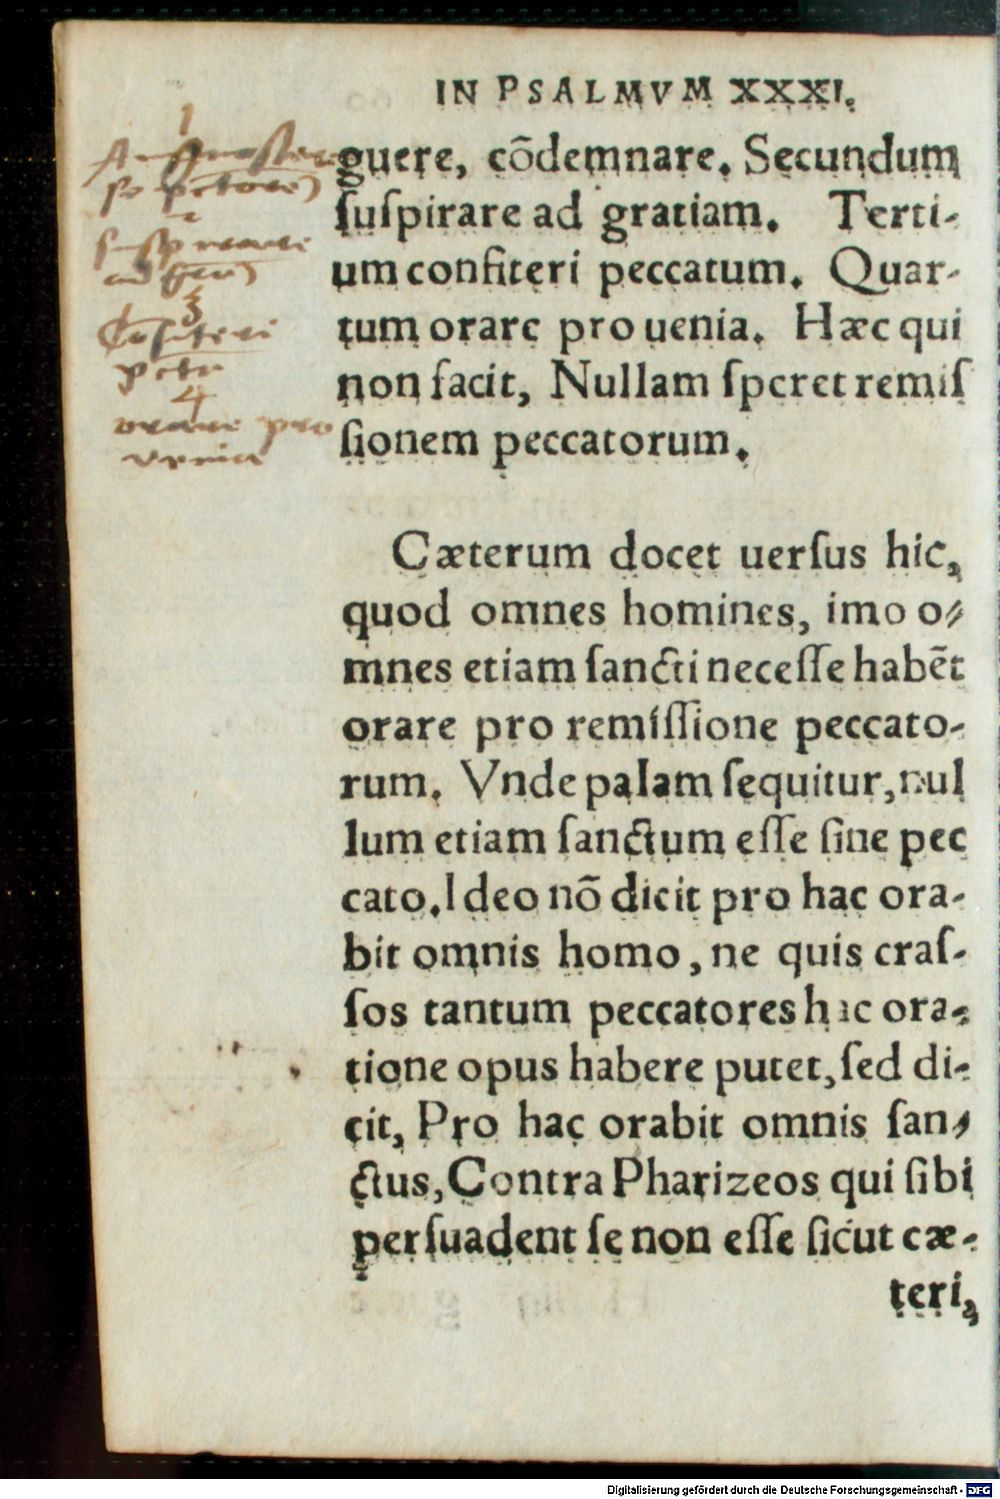 IN PSALMVM XXXI.
guere, cōdemnare. Secundum
ſuſpirare ad gratiam. Terti-
um confiteri peccatum. Quar-
tum orare pro uenia. Hæc qui
non facit, Nullam ſperet remiſ
ſionem peccatorum.
Cæterum docet uerſus hic,
quod omnes homines, imo o-
mnes etiam ſancti neceſſe habēt
orare pro remiſſione peccato-
rum. Vnde palam ſequitur, nul
lum etiam ſanctum eſſe ſine pec
cato. Ideo nō dicit pro hac ora-
bit omnis homo, ne quis craſ-
ſos tantum peccatores hac ora-
tione opus habere putet, ſed di-
cit, Pro hac orabit omnis ſan-
ctus, Contra Pharizeos qui ſibi
perſuadent ſe non eſſe ſicut cæ-
teri,
1
2
ſuſpirare
3
Cōfiteri
4
orare pro
venia
Digitalisierung gefördert durch die Deutsche Forschungsgemeinschaft - DFG